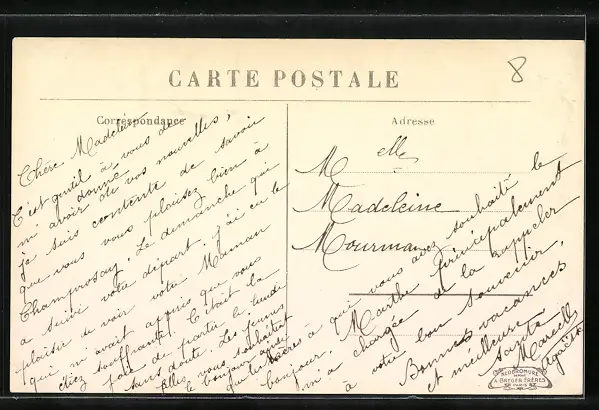 CARTE POSTALE
8
Correspondance
Adresse
Melle
Madeleine
Chère Madeleine
C'est gentil à vous de
m'avoir donné de vos nouvelles,
je suis contente de savoir
que vous vous plaisez bien à
Champrosay. Le dimanche qui
a suivi votre départ j'ai eu le
plaisir de voir votre Maman
qui m'avait appris que vous
étiez souffrante. C'était la
joie de partir le lundi
sans doute. Les jeunes
filles vous souhaitent
le bonjour ainsi
à qui vous avez souhaité le
bonjour. Marthe principalement
m'a chargée de la rappeler
à votre bon souvenir.
Bonnes vacances
et meilleure santé
Marcelle
NÉOBROMURE
A. BREGER FRÈRES
PARIS